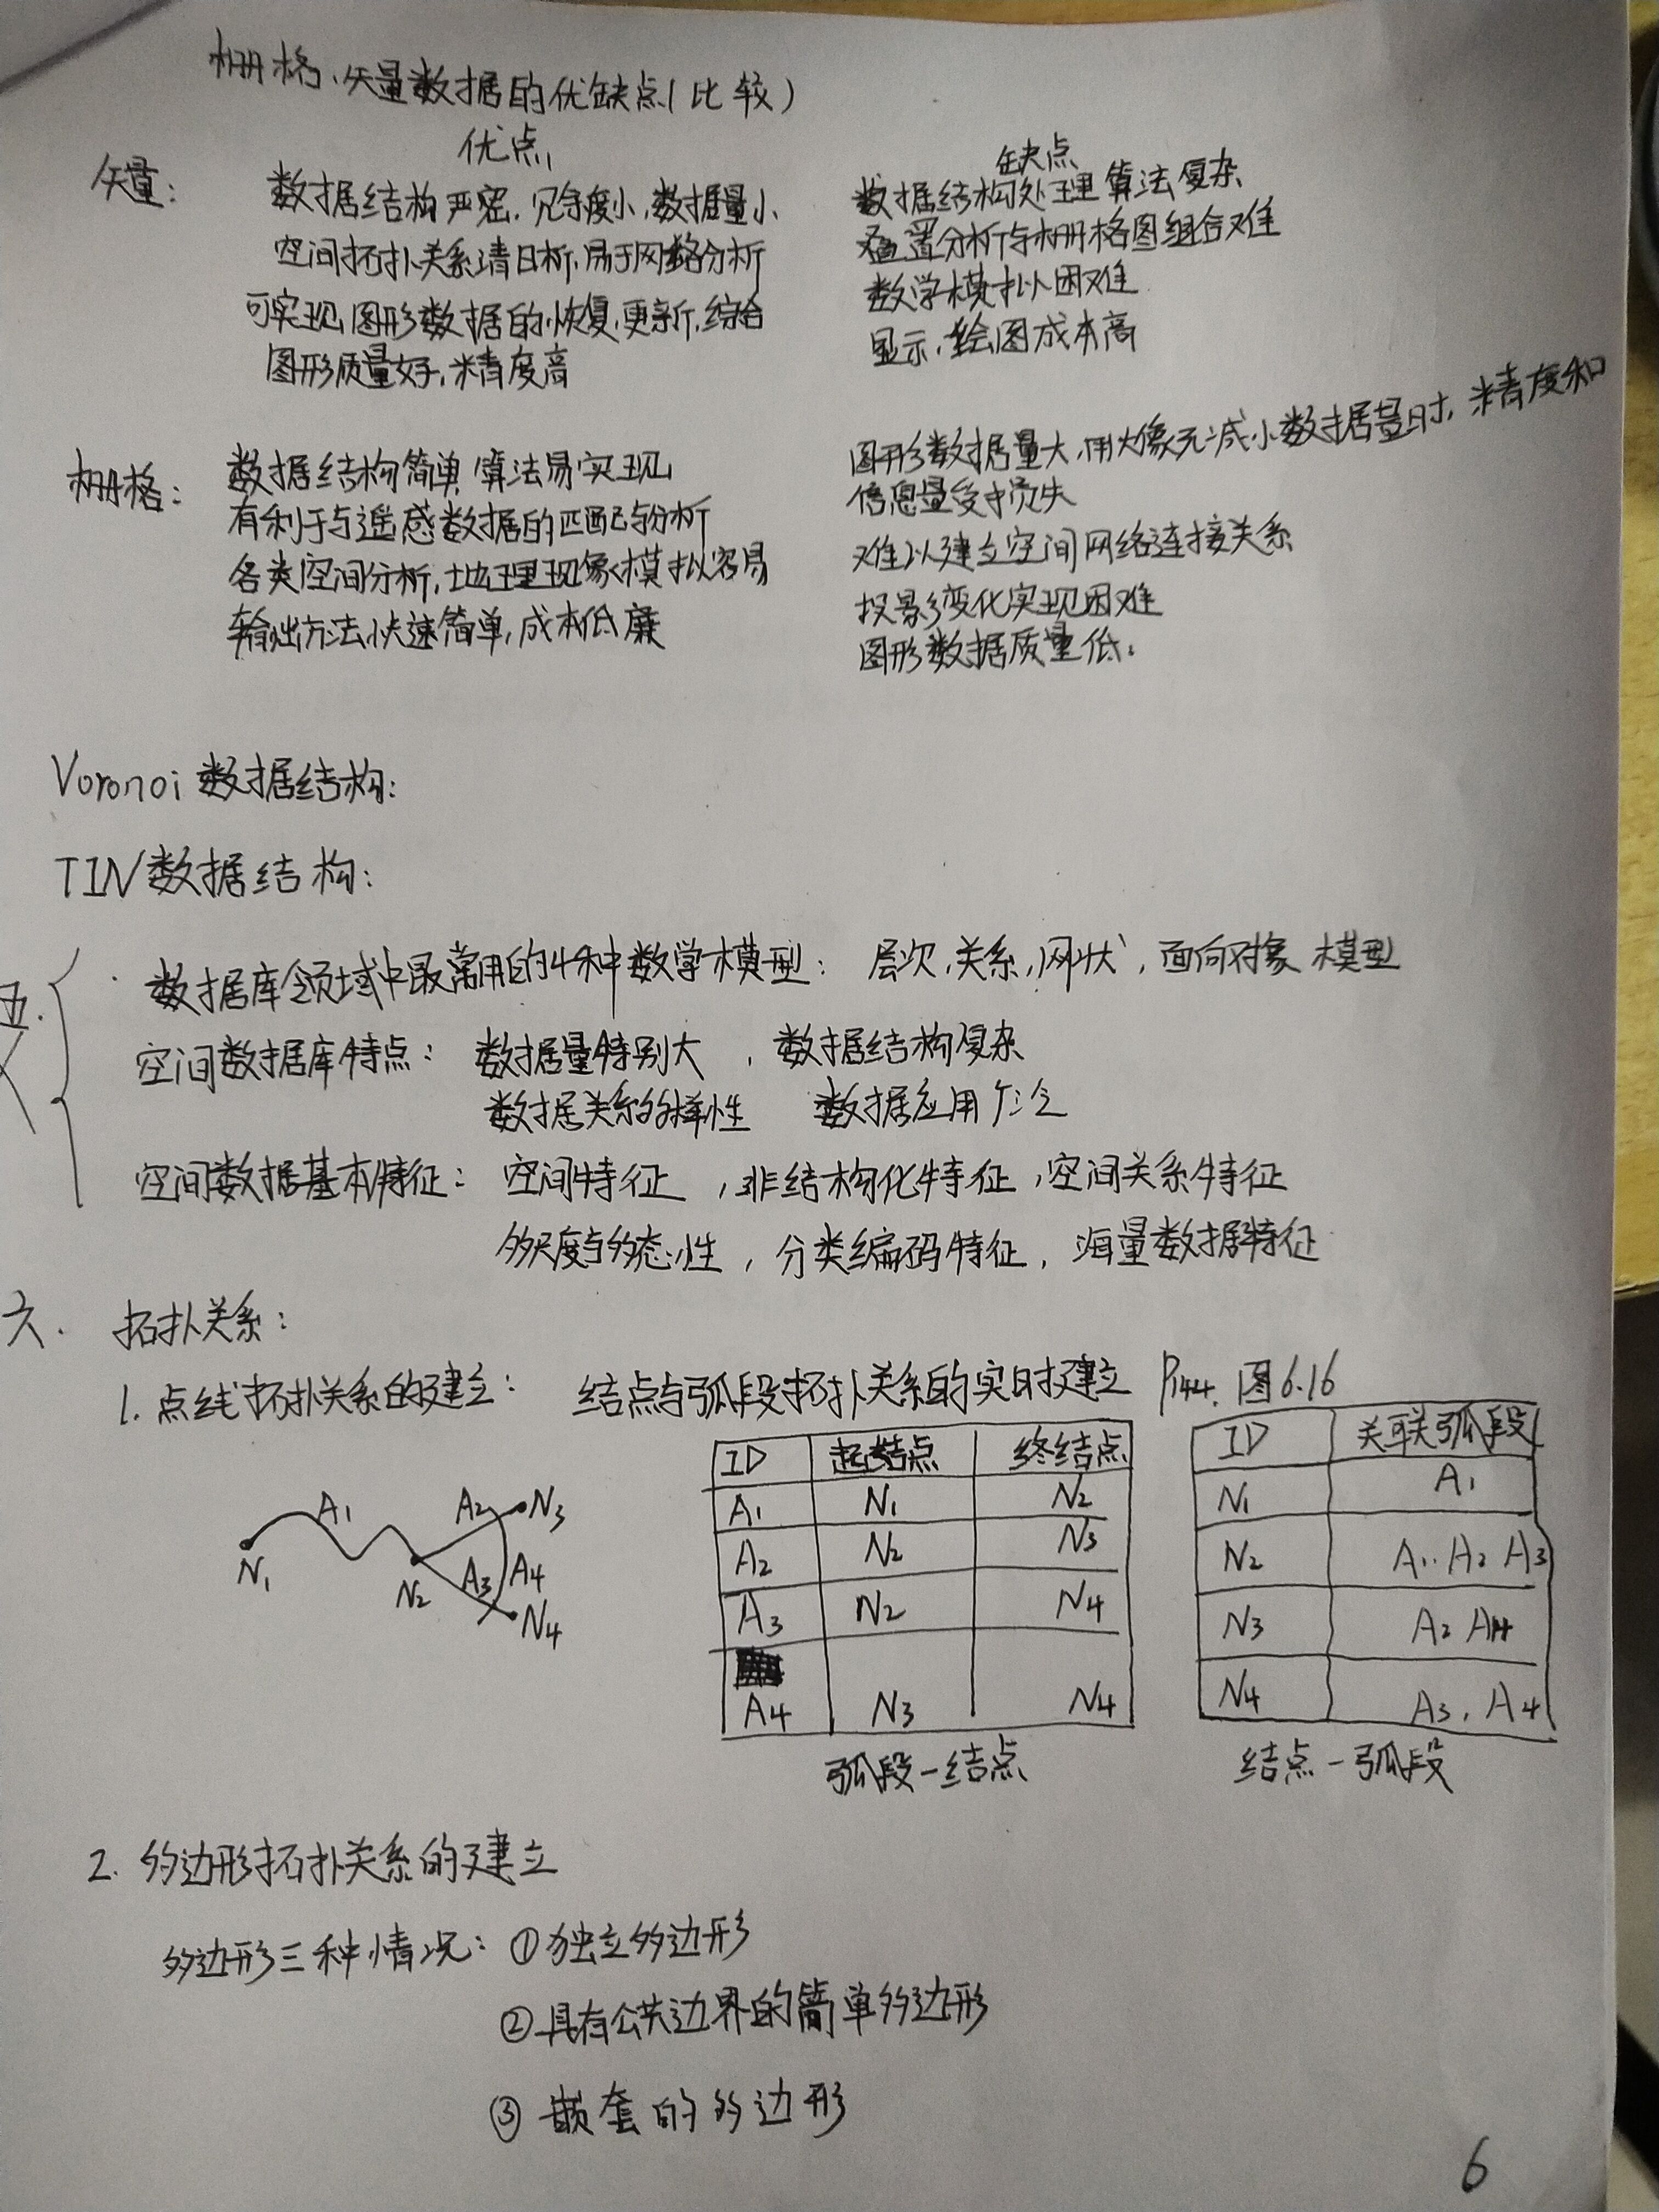 栅格、矢量数据的优缺点(比较)
优点
缺点
矢量:
数据结构严密,冗余度小,数据量小、
空间拓扑关系清晰,易于网络分析
可实现图形数据的恢复,更新,综合
图形质量好,精度高
数据结构处理算法复杂
叠置分析与栅格图组合难
数学模拟困难
显示、绘图成本高
栅格:
数据结构简单,算法易实现
有利于与遥感数据的匹配与分析
各类空间分析,地理现象模拟容易
输出方法快速简单,成本低廉
图形数据量大,用大像元减小数据量时,精度和
信息量受损失
难以建立空间网络连接关系
投影变化实现困难
图形数据质量低。
Voronoi 数据结构:
TIN 数据结构:
五.
数据库领域中最常用的4种数学模型: 层次,关系,网状,面向对象 模型
空间数据库特点: 数据量特别大 , 数据结构复杂
数据关系多样性 数据应用广泛
空间数据基本特征: 空间特征 ,非结构化特征,空间关系特征
多尺度与多态性,分类编码特征,海量数据特征
六. 拓扑关系:
1. 点线拓扑关系的建立: 结点与弧段拓扑关系的实时建立 P144. 图6.16
A1
A2
N3
N1
N2
A3
A4
N4
ID 起结点 终结点
A1 N1 N2
A2 N2 N3
A3 N2 N4
A4 N3 N4
弧段-结点
ID 关联弧段
N1 A1
N2 A1. A2 A3
N3 A2 A4
N4 A3, A4
结点-弧段
2. 多边形拓扑关系的建立
多边形三种情况: ①独立多边形
②具有公共边界的简单多边形
③ 嵌套的多边形
6